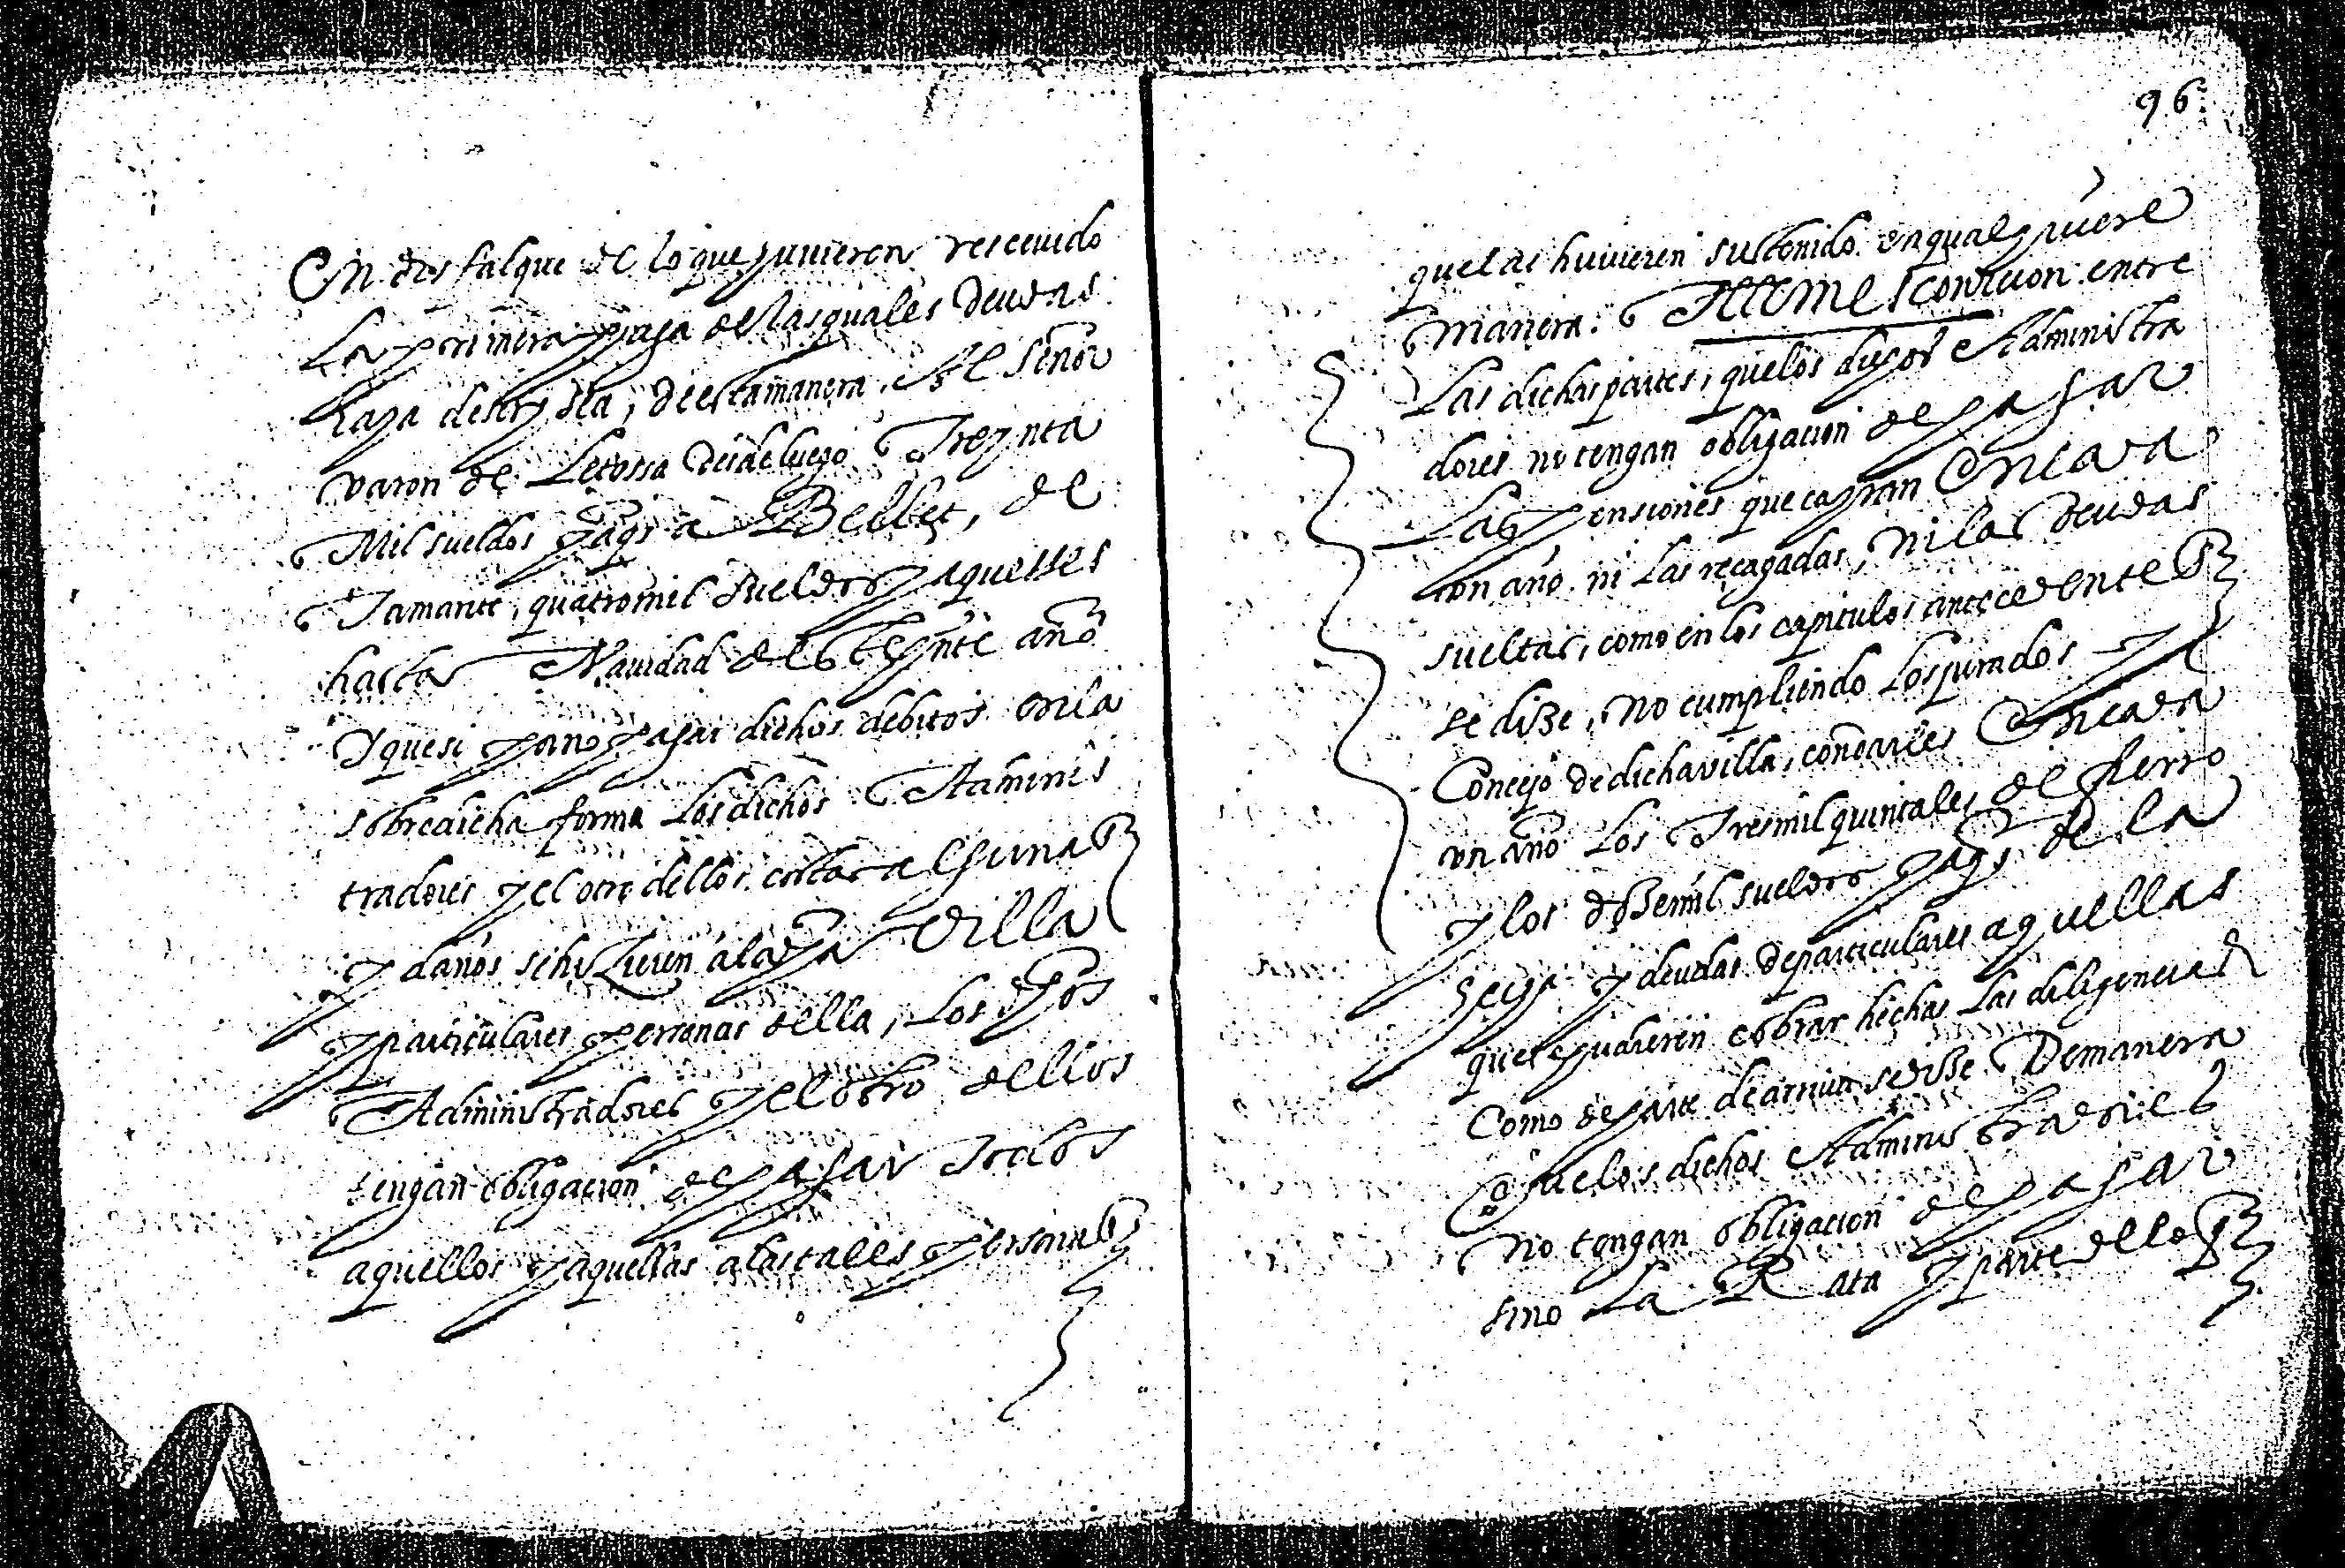 En desfalque de lo que huuieren resceuido
La primera paga de las quales deudas
haya de ser, dela, de esta manera. Al Señor
varon de Letossa desde luego Treynta
Mil sueldos Jaqs a Bellet, de
Jamante, quatromil sueldos jaqueses
hasta Navidad del pnte año
Y que si pano pagar dichos debitos en la
sobredicha forma los dichos Adminis
tradores y el otro dellos costas algunas
y daños se hizieren a la dha Villa
y particulares personas della, Los dhos
Administradores y el otro dellos
tengan obligacion de pagar todos
aquellos y aquellas a las tales personas
96
que las huuieren sustenido en qual quiere
manera. Item es condicion entre
Las dichas partes, que los dichos Administra
dores no tengan obligacion de pagar
Las pensiones que cayran En cada
un año ni las recagadas, Ni las deudas
sueltas, como en los capitulos antecedentes
se dize, No cumpliendo Los Jurados y
Concejo de dicha villa, con darles En cada
un año Los Tresmil quintales de fierro
y los dozemil sueldos Jaqs de la
Secça y deudas de particulares aquellas
que se pudieren cobrar hechas Las diligencias
Como de parte de arriua se dize Demanera
Que los dichos Administradores
No tengan obligacion de pagar
sino La Rata y parte dellos